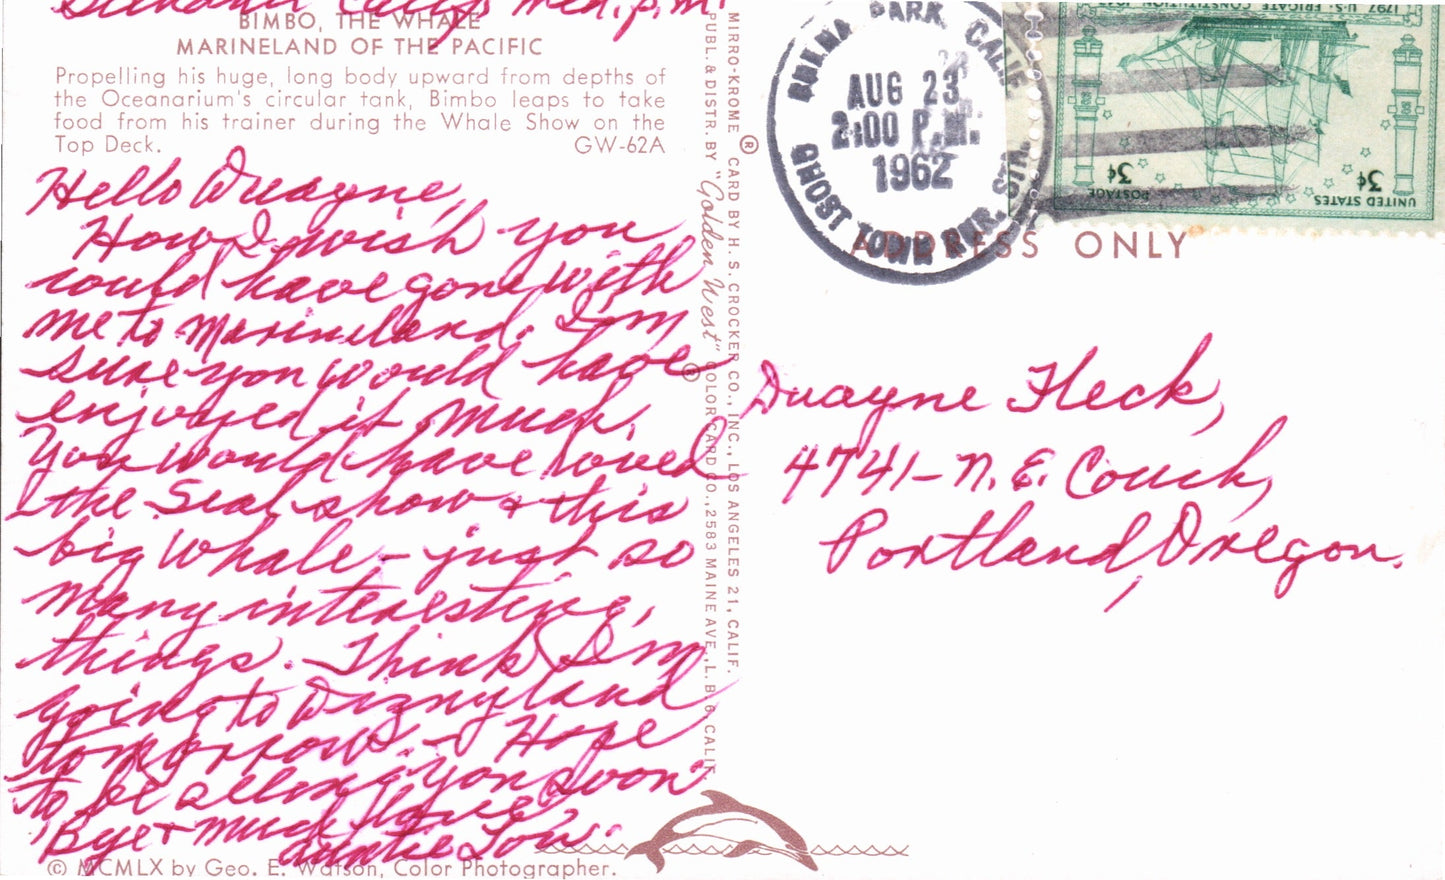 Calif. Wed. p.m.
BIMBO, THE WHALE
MARINELAND OF THE PACIFIC
Propelling his huge, long body upward from depths of
the Oceanarium's circular tank, Bimbo leaps to take
food from his trainer during the Whale Show on the
Top Deck. GW-62A
Hello Duayne,
How I wish you
could have gone with
me to Marineland. I'm
sure you would have
enjoyed it much.
You would have loved
the Seal show + this
big whale - just so
many interesting,
things. Think I'm
going to Disnyland
tomorrow - Hope
to be seeing you soon
Bye + much love
auntie Lou.
© MCMLX by Geo. E. Watson, Color Photographer.
PUBL. & DISTR. BY "Golden West" ® COLOR CARD CO., 2583 MAINE AVE., L. B. 6, CALIF.
MIRRO-KROME ® CARD BY H. S. CROCKER CO., INC., LOS ANGELES 21, CALIF.
BUENA PARK CALIF.
AUG 23
2:00 P.M.
1962
GHOST TOWN BR. STA.
1797 U.S. FRIGATE CONSTITUTION 1947
3¢ POSTAGE 3¢
UNITED STATES
ADDRESS ONLY
Duayne Fleck,
4741-N.E. Couch,
Portland, Oregon.